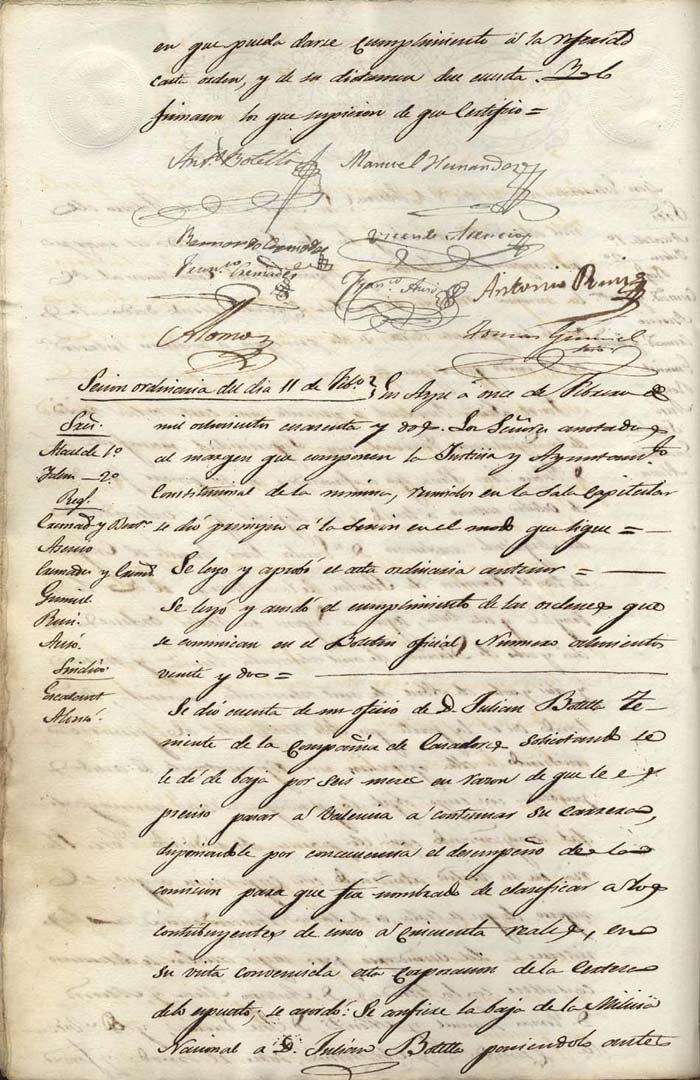 en que pueda darse cumplimiento á la referida
carta orden, y de su dictamen dee cuenta. Y lo
firmaron los que supieron de que Certifico =
Antº Botella Manuel Hernandez
Bernardo Cremades Vicente Asencio
Franco Cremades Franco Aznar Antonio Ruiz
Alonso Tomas Gumiel
Sesion ordinaria del dia 11 de Febº
En Aspe á once de Febrero de
Sres.
mil ochocientos cuarenta y dos. Los Señores anotados
Alcalde 1º
al márgen que componen la Justicia y Ayuntamto
Idem 2º
Constitucional de la misma, reunidos en la Sala Capitular
Regs.
Cremads y
se dió principio á la Sesion en el modo que sigue =
Asencio
Cremades y
Se leyó y aprobó el acta ordinaria anterior =
Gumiel
Se leyó y acordó el cumplimiento de las ordenes que
Ruiz
se comunican en el Boletin oficial Numero
veinte y dos =
Sindicos
Alonso
Se dió cuenta de un oficio de D. Julian Botella Te-
niente de la Compañia de Cazadores solicitando se
le dé de baja por seis meses en razon de que le es
preciso pasar á Valencia á continuar su Carrera,
por consecuencia el desempeño de la
comision para que fué nombrado de clasificar a los
contribuyentes de cinco á cincuenta reales, en
su vista convencida esta Corporacion de la Certeza
de lo espuesto; se acordó: Se la baja de la Milicia
Nacional a D. Julián Botella poniendolo antes